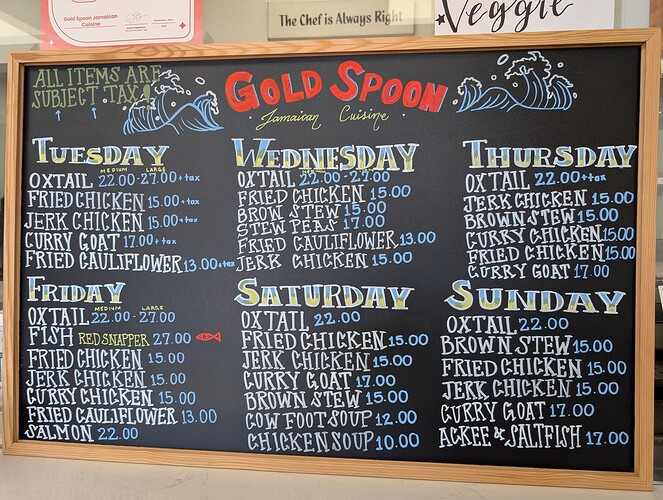 Gold Spoon Jamaican
Cuisine
The Chef is Always Right
Veggie
ALL ITEMS ARE
SUBJECT TAX!
GOLD SPOON
Jamaican Cuisine
TUESDAY
MEDIUM LARGE
OXTAIL 22.00-27.00+tax
FRIED CHICKEN 15.00+tax
JERK CHICKEN 15.00+tax
CURRY GOAT 17.00+tax
FRIED CAULIFLOWER 13.00+tax
WEDNESDAY
OXTAIL 22.00-27.00
FRIED CHICKEN 15.00
BROW STEW 15.00
STEW PEAS 17.00
FRIED CAULIFLOWER 13.00
JERK CHICKEN 15.00
THURSDAY
OXTAIL 22.00++tax
JERK CHICKEN 15.00
BROWN STEW 15.00
CURRY CHICKEN 15.00
FRIED CHICKEN 15.00
CURRY GOAT 17.00
FRIDAY
MEDIUM LARGE
OXTAIL 22.00-27.00
FISH RED SNAPPER 27.00
FRIED CHICKEN 15.00
JERK CHICKEN 15.00
CURRY CHICKEN 15.00
FRIED CAULIFLOWER 13.00
SALMON 22.00
SATURDAY
OXTAIL 22.00
FRIED CHICKEN 15.00
JERK CHICKEN 15.00
CURRY GOAT 17.00
BROWN STEW 15.00
COW FOOT SOUP 12.00
CHICKEN SOUP 10.00
SUNDAY
OXTAIL 22.00
BROWN STEW 15.00
FRIED CHICKEN 15.00
JERK CHICKEN 15.00
CURRY GOAT 17.00
ACKEE & SALTFISH 17.00